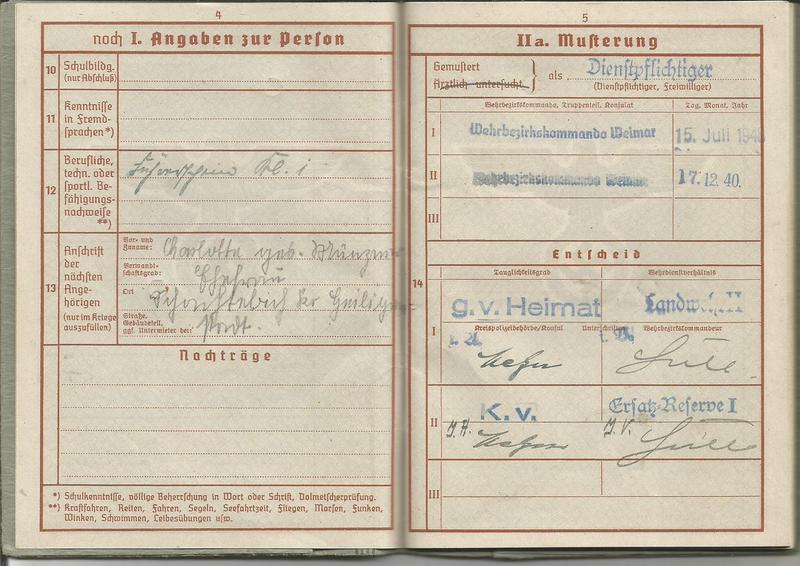 4
noch I. Angaben zur Person
10 Schulbildg.
(nur Abschluß)
11 Kenntnisse
in Fremd-
sprachen*)
12 Berufliche,
techn. oder
sportl. Be-
fähigungs-
nachweise
**)
Führerschein Kl. 1
13 Anschrift
der
nächsten
Ange-
hörigen
(nur im Kriege
auszufüllen)
Vor- und
Zuname:
Charlotte geb.
Verwandt-
schaftsgrad:
Ehefrau
Ort
Kr Heiligen
Straße,
Gebäudeteil,
ggf. Untermieter bei:
stadt.
Nachträge
*) Schulkenntnisse, völlige Beherrschung in Wort oder Schrift, Dolmetscherprüfung.
**) Kraftfahren, Reiten, Fahren, Segeln, Seefahrtzeit, Fliegen, Morsen, Funken,
Winken, Schwimmen, Leibesübungen usw.
5
IIa. Musterung
Gemustert
Ärztlich untersucht
als Dienstpflichtiger
(Dienstpflichtiger, Freiwilliger)
Wehrbezirkskommando, Truppenteil, Konsulat
Tag, Monat, Jahr
I Wehrbezirkskommando Weimar 15. Juli 1940
II Wehrbezirkskommando Weimar 17.12.40.
III
Entscheid
14
Tauglichkeitsgrad
Wehrdienstverhältnis
I g.v. Heimat Landw. II
Kreispolizeibehörde/Konsul
Unterschriften
Wehrbezirkskommandeur
II K.v. Ersatz-Reserve I
J.A.
J.V.
III